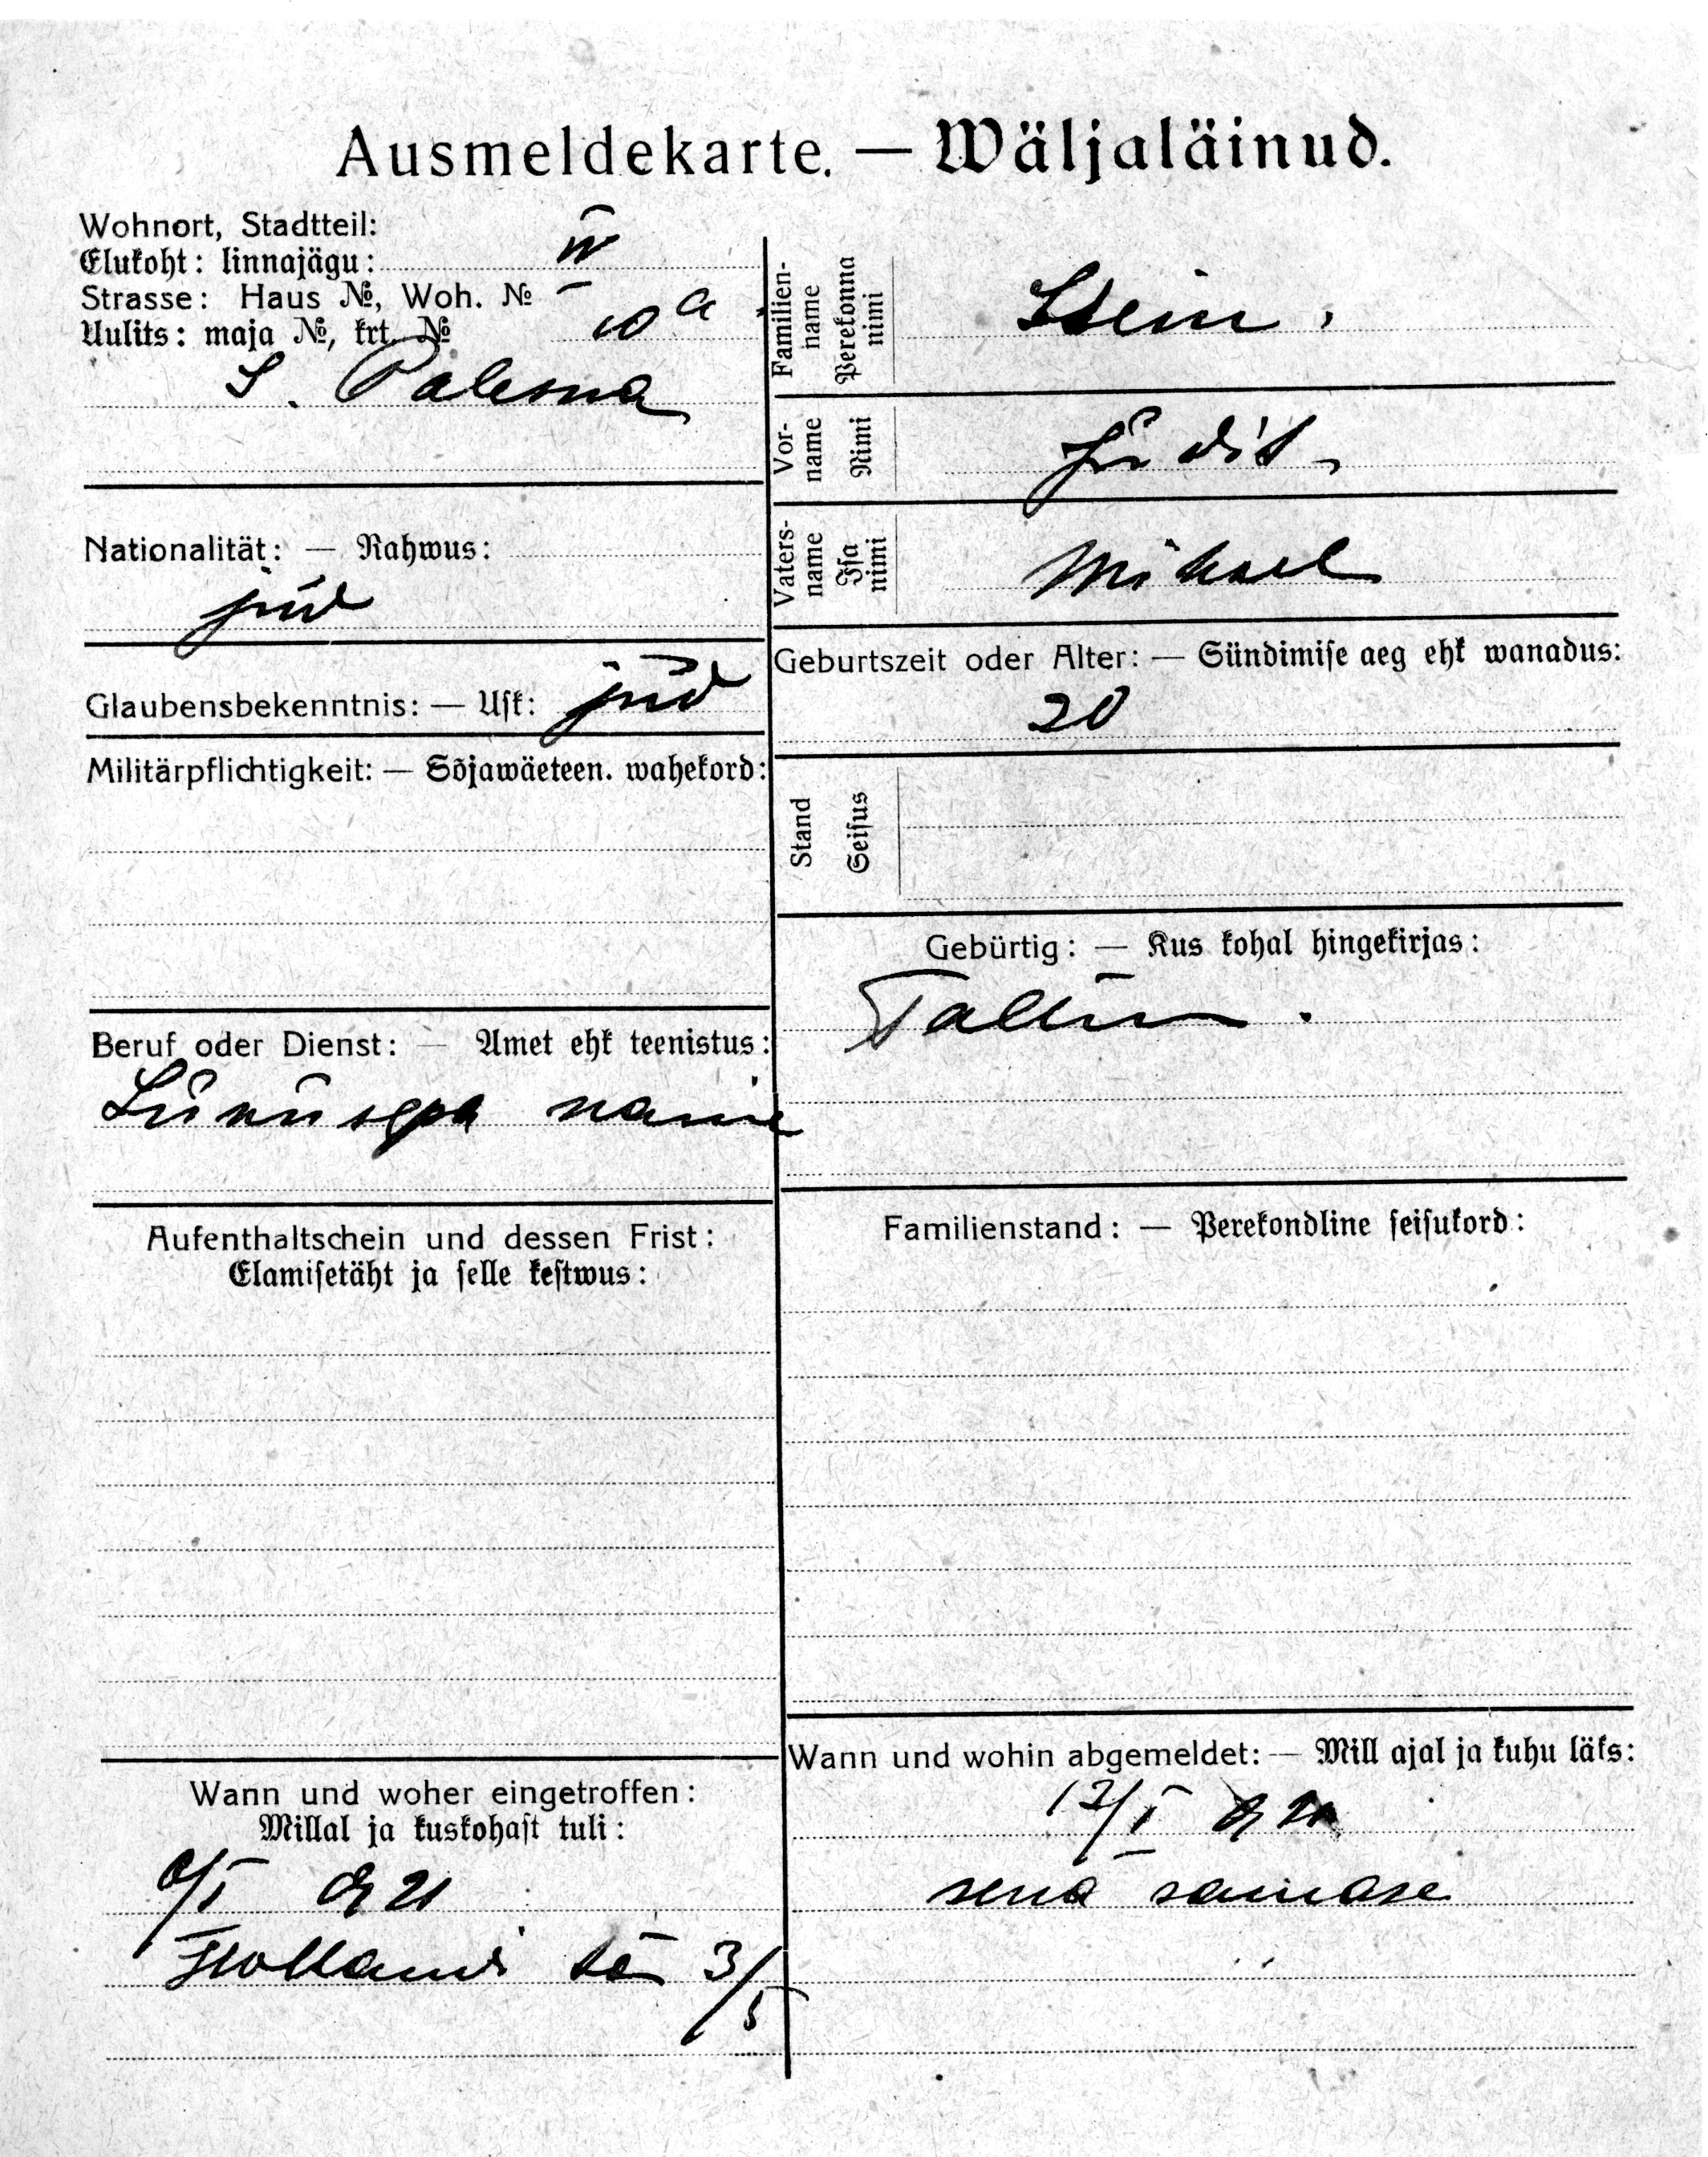 Ausmeldekarte. — Wäljaläinud.
Wohnort, Stadtteil:
Elukoht: linnajägu: IV
Strasse: Haus №, Woh. №
Uulits: maja №, krt. № 10 a
S. Palesna
Nationalität: — Rahwus:
jüd
Glaubensbekenntnis: — Usk: jüd
Militärpflichtigkeit: — Sõjawäeteen. wahekord:
Beruf oder Dienst: — Amet ehk teenistus:
Aufenthaltschein und dessen Frist:
Elamisetäht ja selle kestwus:
Wann und woher eingetroffen:
Millal ja kuskohast tuli:
/I 21
Hollandi 3/5
Familien-
name
Perekonna
nimi
Stein.
Vor-
name
Nimi
Judit
Vaters-
name
Isa
nimi
Mihael
Geburtszeit oder Alter: — Sündimise aeg ehk wanadus:
20
Stand
Seisus
Gebürtig: — Kus kohal hingekirjas:
Tallinn.
Familienstand: — Perekondline seisukord:
Wann und wohin abgemeldet: — Mill ajal ja kuhu läks:
12/I
senna samase